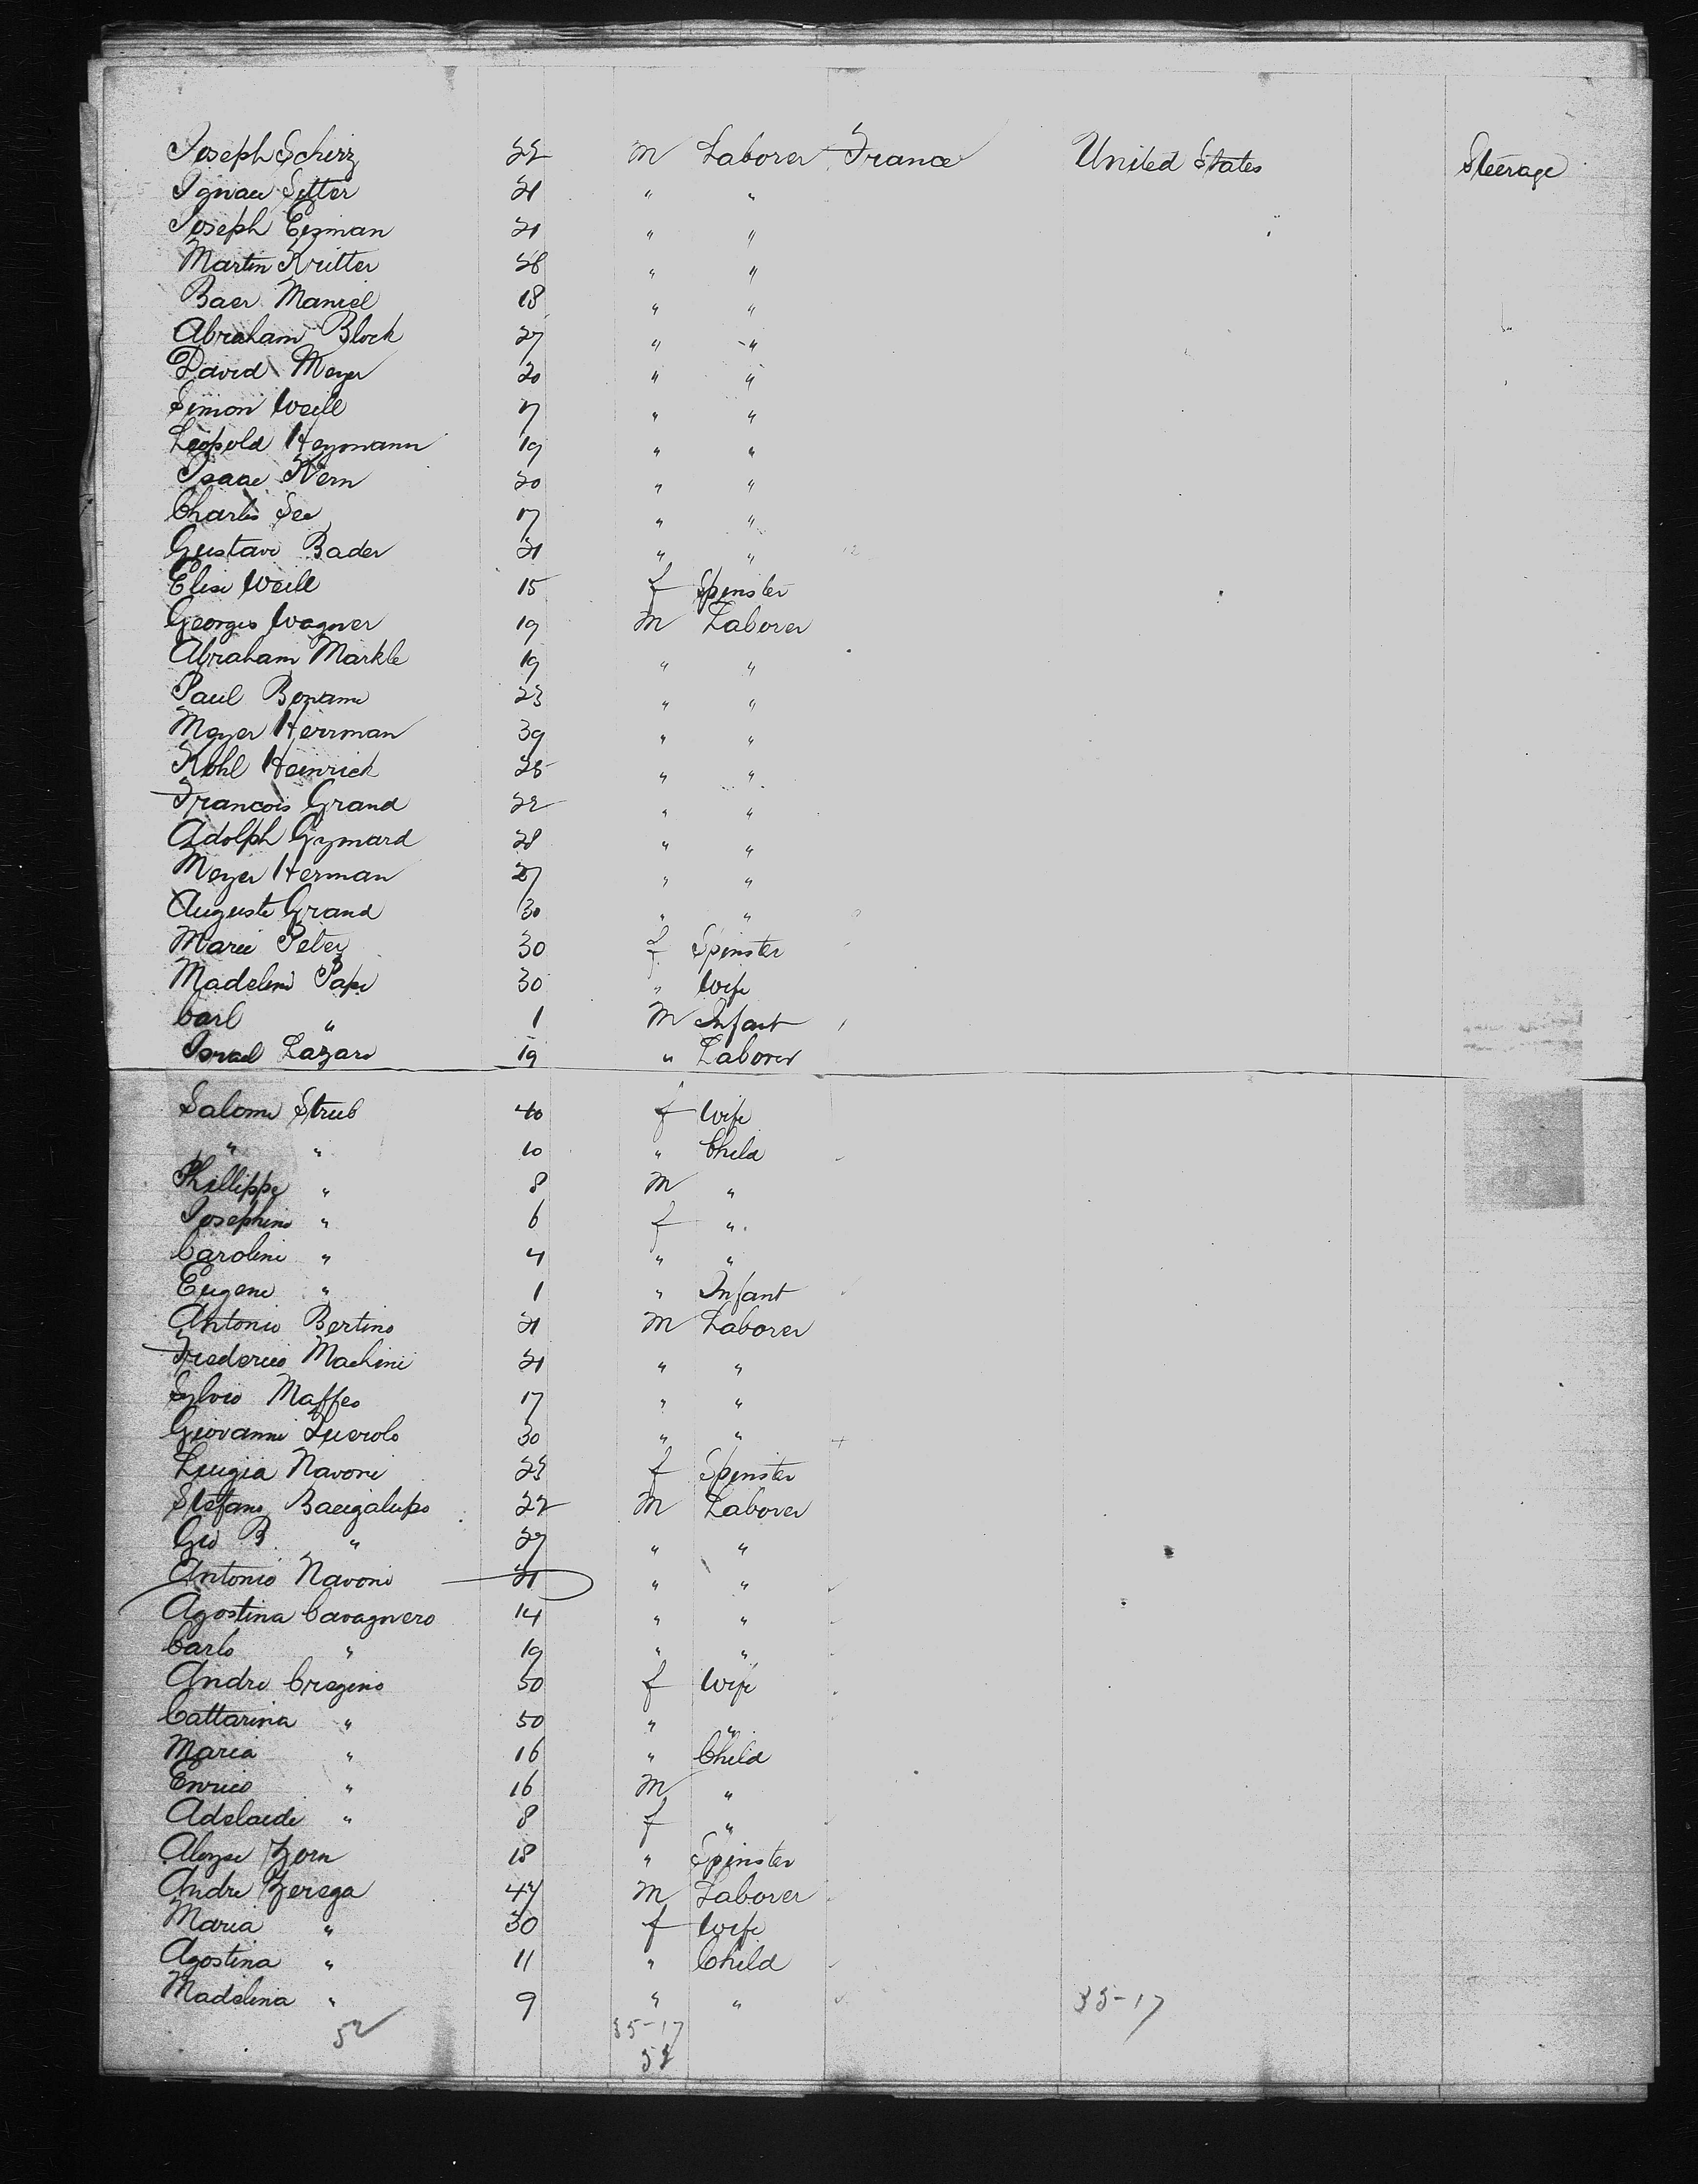 Joseph Schirz 22 M Laborer France United States Steerage
Ignace Sitter 21 " "
Joseph Eisman 21 " "
Martin Kritter 28 " "
Baer Maniel 18 " "
Abraham Block 27 " "
David Meyer 20 " "
Simon Weill 17 " "
Leopold Heymann 19 " "
Isaac Kern 20 " "
Charles See 17 " "
Gustave Bader 21 " "
Elise Weill 15 f Spinster
Georges Wagner 19 M Laborer
Abraham Markle 19 " "
Paul Bonami 23 " "
Meyer Herrman 39 " "
Kohl Heinrich 25 " "
Francois Grand 22 " "
Adolph Gymard 28 " "
Meyer Herman 27 " "
Auguste Grand 30 " "
Marie Peter 30 f Spinster
Madeline Pape 30 " Wife
Carl " 1 M Infant
Israel Lazare 19 " Laborer
Salome Strub 40 f Wife
" " 10 " Child
Phillippe " 8 M "
Josephine " 6 f "
Caroline " 4 " "
Eugene " 1 " Infant
Antonio Bertino 21 M Laborer
Frederico Machini 21 " "
Sylvio Maffeo 17 " "
Giovanni 30 " "
Luigia Navone 23 f Spinster
Stefano Bacigalupo 22 M Laborer
Gio B. " 27 " "
Antonio Navone 21 " "
Agostina Cavagnero 14 " "
Carlo " 19 " "
Andre Cregino 50 f Wife
Cattarina " 50 " "
Maria " 16 " Child
Enrico " 16 M "
Adelaide " 8 f "
Aloyse Zorn 18 " Spinster
Andre Zerega 47 M Laborer
Maria " 30 f Wife
Agostina " 11 " Child
Madelina " 9 " " 35-17
52 35-17
52